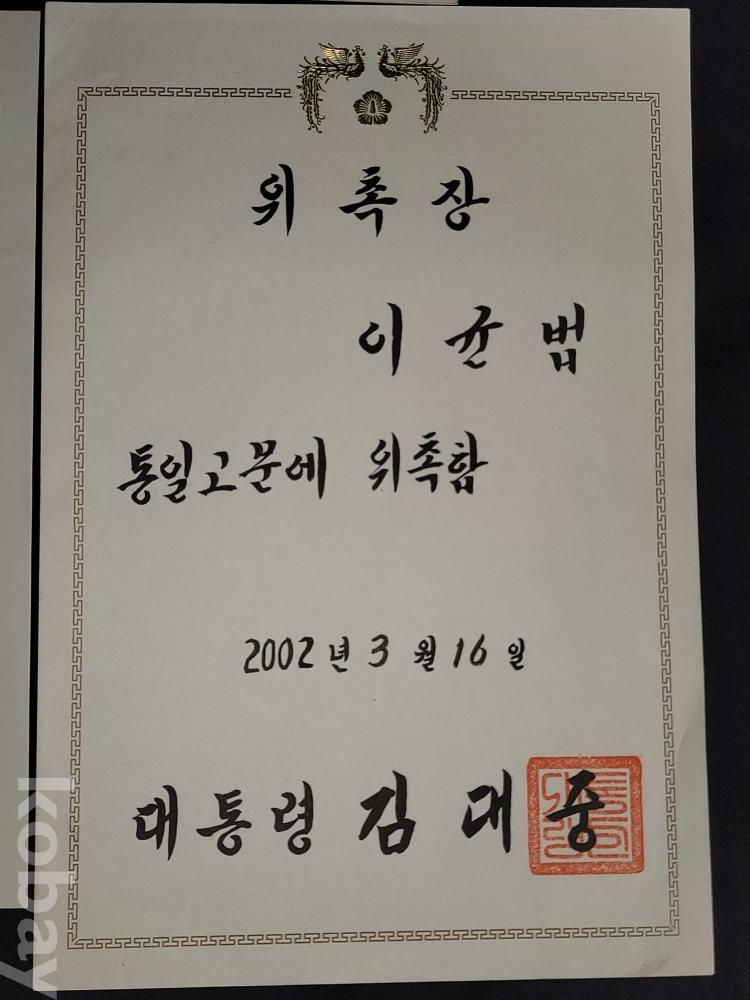 위 촉 장
이 균 범
통일고문에 위촉함
2002 년 3 월 16 일
대 통 령 김 대 중
kobay